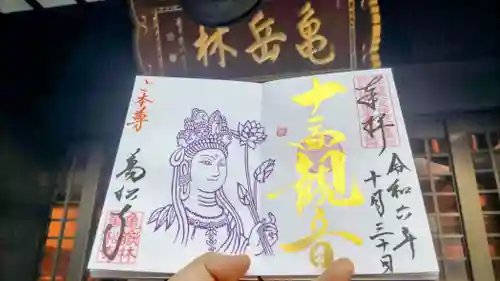 亀岳林
奉拝
令和六年
十月三十日
十一面観音
ご本尊
萬松寺